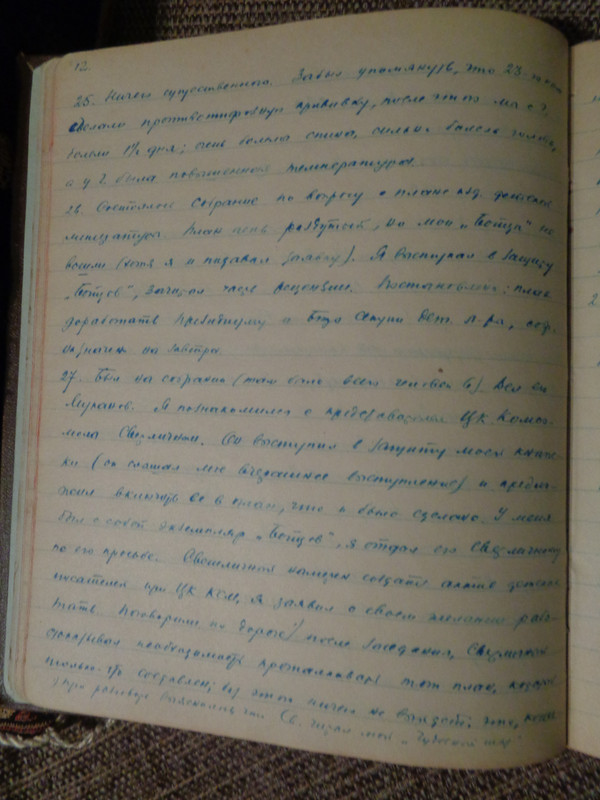 12
25. Ничего существенного. Забыл упомянуть, что 23
делали противотифозную прививку, после этого мы с Г.
болели 1½ дня; очень болела спина, сильно болела голова,
а у Г. была повышенная температура.
26. Состоялось собрание по вопросу о плане изд. детской
литературы. План очень раздутый, но мои „Бойцы" не
вошли (хотя я и подавал заявку). Я выступал в защиту
„Бойцов", зачитал части рецензии. Постановлено: план
доработать Президиуму и Бюро Секции дет. л-ры,
назначен на завтра.
27. Был на собрании (там было всего человек 6). Вел его
Муканов. Я познакомился с представителем ЦК Комсо-
мола Свидличным. Он выступил в защиту моей книж-
ки (он слышал мое вчерашнее выступление) и предло-
жил включить ее в план, что и было сделано. У меня
был с собой экземпляр „Бойцов", я отдал его Свидличному
по его просьбе. Свидличный намерен создать актив детских
писателей при ЦК КСМ, я заявил о своем желании рабо-
тать. Поговорили по дороге после заседания, Свидличный
необходимость проталкивать этот план, который
только что составлен; без этого ничего не выйдет;
при разговоре выяснилось, что Св. читал мой „Чудесный шар"